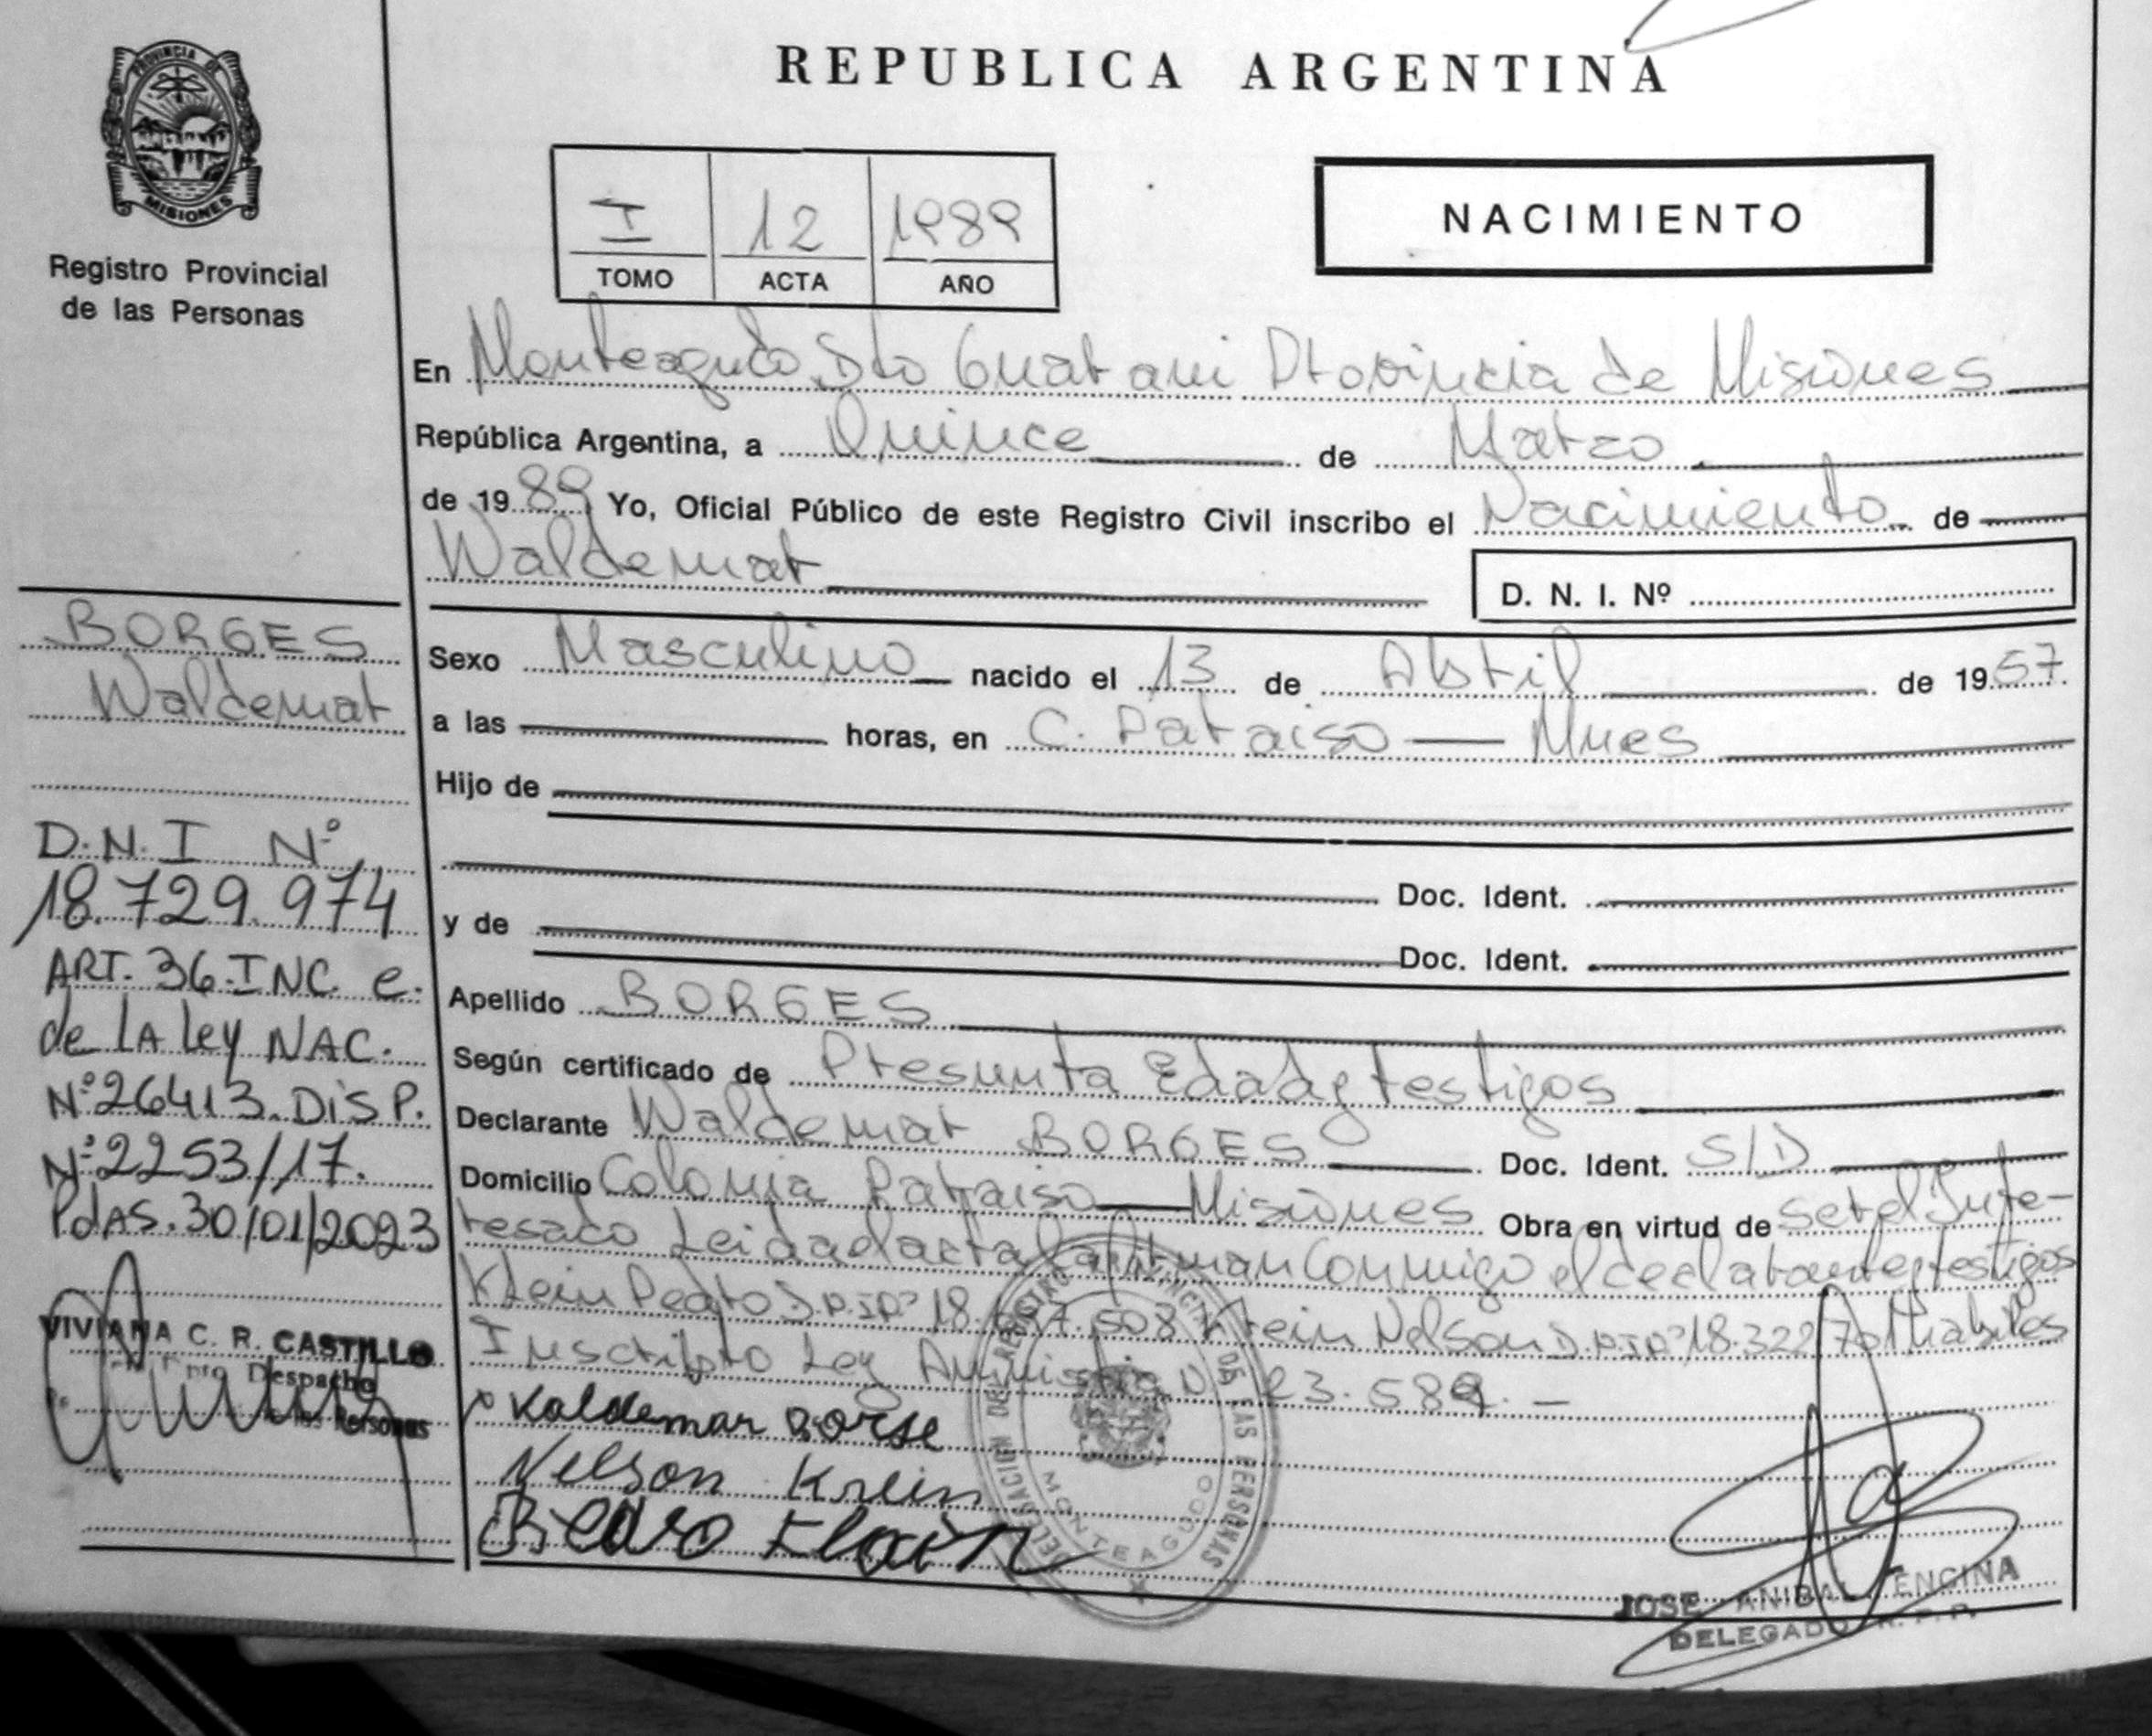 PROVINCIA DE
MISIONES
Registro Provincial
de las Personas
BORGES
Waldemar
D.N.I Nº
18.729.974
ART. 36 INC. e.
de LA Ley NAC.
Nº 26413. DISP.
Nº 2253/17.
PdAS. 30/01/2023
VIVIANA C. R. CASTILLO
Dpto Despacho
de las Personas
REPUBLICA ARGENTINA
I 12 1989
TOMO ACTA AÑO
NACIMIENTO
En Monteagudo Dto Guarani Provincia de Misiones
República Argentina, a Quince de Marzo
de 1989 Yo, Oficial Público de este Registro Civil inscribo el Nacimiento de
Waldemar
D. N. I. Nº
Sexo Masculino nacido el 13 de Abril de 1957
a las horas, en C. Paraiso — Mnes
Hijo de
Doc. Ident.
y de
Doc. Ident.
Apellido BORGES
Según certificado de Presunta Edad y testigos
Declarante Waldemar BORGES Doc. Ident. S/D
Domicilio Colonia Paraiso — Misiones Obra en virtud de ser el Inte-
resado Leida el acta la firman Conmigo el declarante y testigos
Klein Pedro D.N.I.Nº 18. .508 Krein Nelson D.N.I.Nº 18.322 Habiles
Inscripto Ley Amnistia Nº 23.589. —
Valdemar Borse
Nelson Krein
Piedro Klain
DELEGACION DEL REGISTRO PROVINCIAL DE LAS PERSONAS
MONTEAGUDO
JOSE ANIBAL ENCINA
DELEGADO R. P. P.